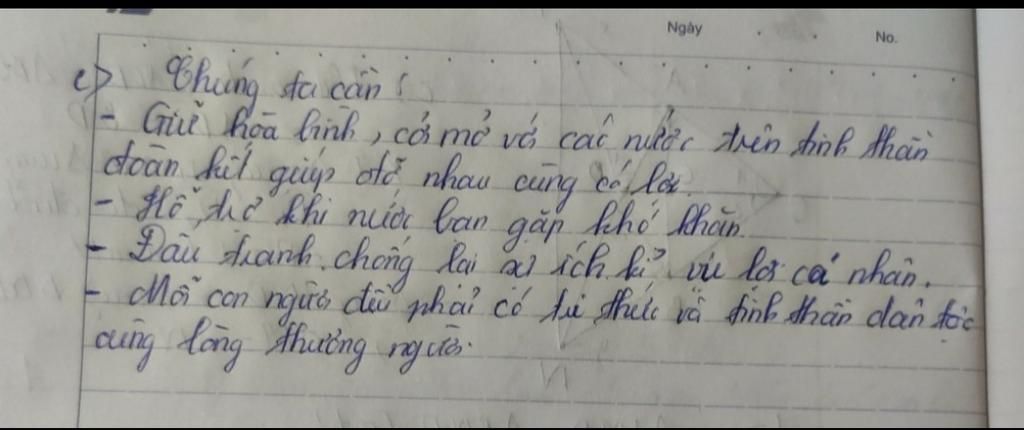 Ngày
No.
c) Chúng ta cần:
- Giữ hòa bình, cởi mở với các nước trên tinh thần
đoàn kết giúp đỡ nhau cùng có lợi.
- Hỗ trợ khi nước bạn gặp khó khăn.
- Đấu tranh chống lại sự ích kỉ vì lợi cá nhân.
- Mỗi con người đều phải có tri thức và tinh thần dân tộc
cùng lòng thương người.